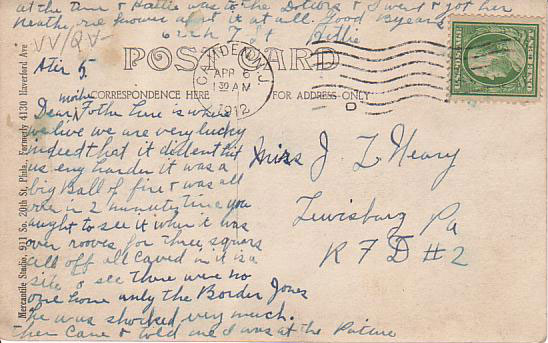 at the Ann & Hattie was to the Doctors & I went & got her
neather one knows about it at all. Good by
Billie
POST CARD
CAMDEN, N.J.
APR 6
1 30 AM
1912
U.S. POSTAGE
ONE CENT
CORRESPONDENCE HERE
FOR ADDRESS ONLY
Mercantile Studio, 911 So. 20th St, Phila., Formerly 4130 Haverford Ave
Dear mother Fother here is where
we live we are very lucky
indeed that it dident hit
us eny harder it was a
big Ball of fire & was all
over in 2 minuets time you
aught to see it when it was
over rooves for three squars
all off all caved in it is a
site to see there were no
one home only the Border Jones
he was shocked very much.
her Came & told me I was at the Picture
Miss J L Neary
Lewisburg Pa
R F D #2